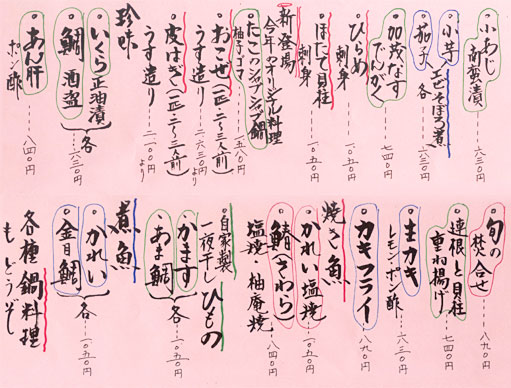 小あじ
南蛮漬
……六三〇円
小芋
茄子
エビそぼろ煮
各……六三〇円
加茂なす
でんがく
……七四〇円
ひらめ
刺身
……一、〇五〇円
ほたて貝柱
刺身
……一、〇五〇円
新登場
今年のオリジナル料理
たこのシャブシャブ鍋
柚子ゴマ
……一五八〇円
おこぜ(一匹二〜三人前)
うす造り……二、六三〇円より
皮はぎ(一匹二〜三人前)
うす造り……二、一〇〇円より
珍味
いくら正油漬
鯛酒盗
各……六三〇円
あん肝
ポン酢
……八四〇円
旬の
焚合せ
……八九〇円
連根と貝柱
重ね揚げ
……七四〇円
生カキ
レモン・ポン酢
……六三〇円
カキフライ
……八九〇円
焼き魚
かれい塩焼
……一、〇五〇円
鰆(さわら)
塩焼・柚庵焼
……八四〇円
自家製
一夜干し
ひもの
かます
あま鯛
各……一、〇五〇円
煮魚
かれい
金目鯛
各……一、〇五〇円
各種鍋料理
もどうぞ